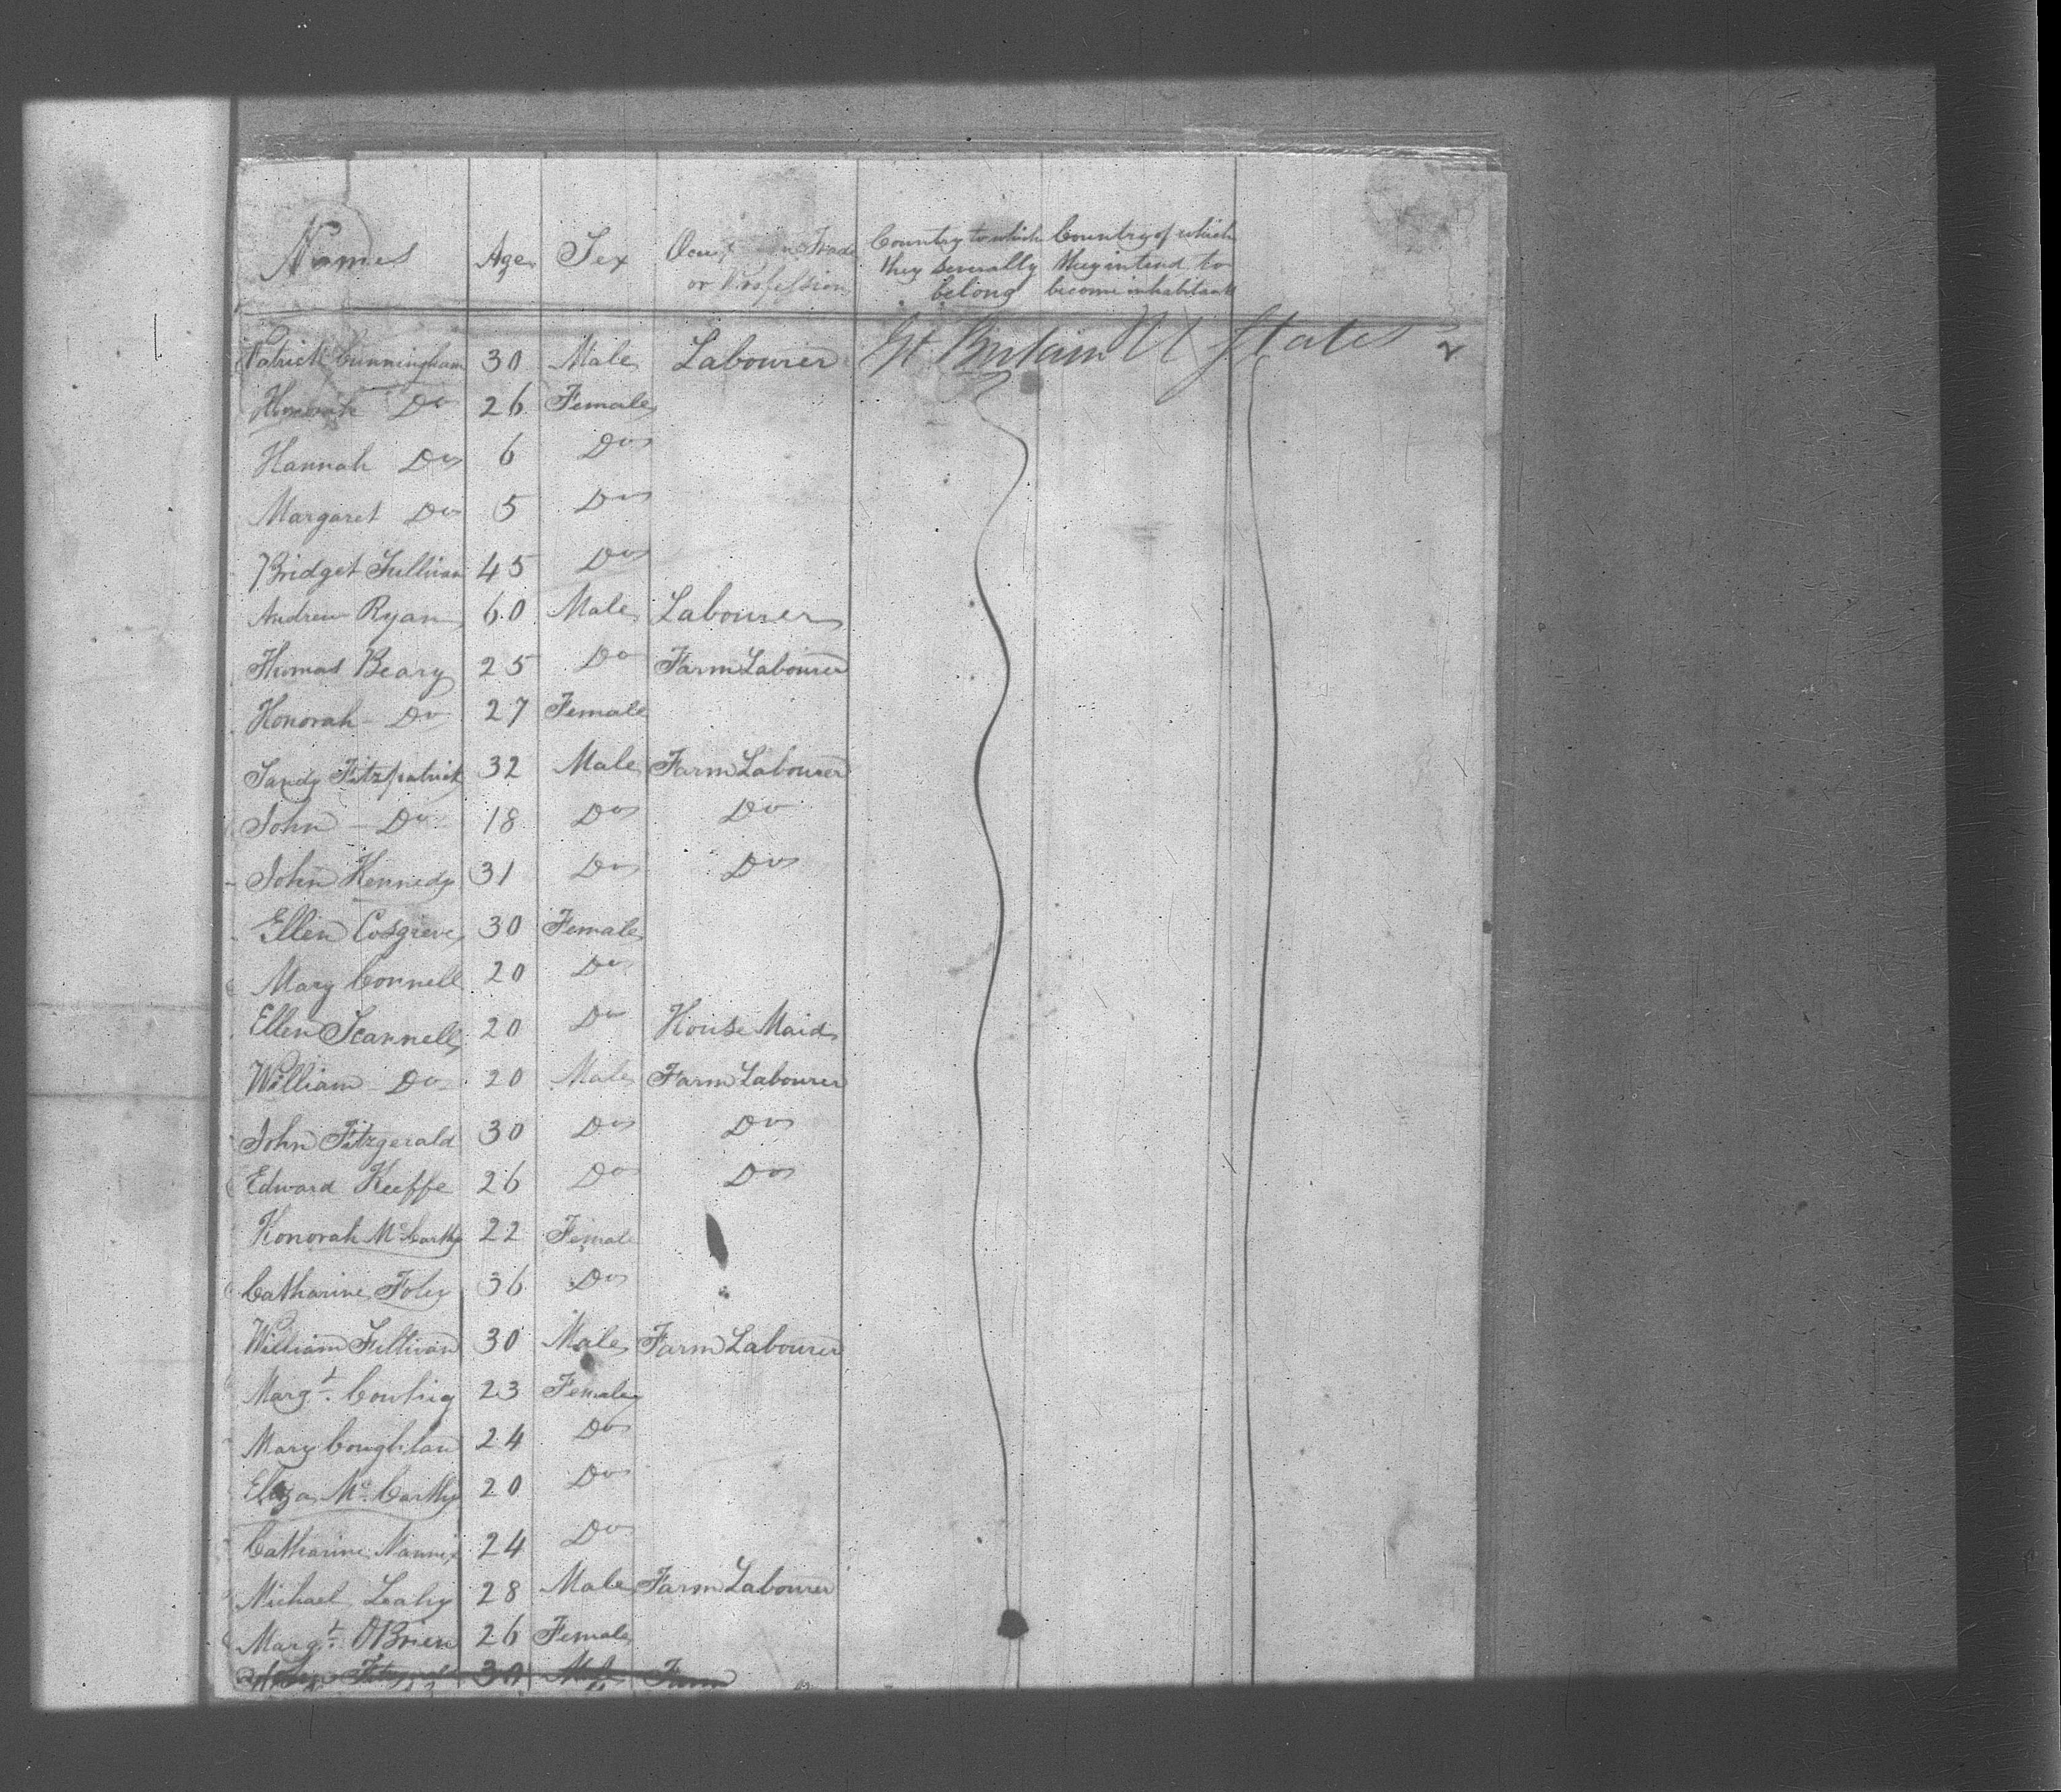 Names Age Sex Trade or Profession Country to which they severally belong Country of which they intend to become inhabitants
Patrick Cunningham 30 Male Labourer Gt Britain U States
Honorah Do 26 Female
Hannah Do 6 Do
Margaret Do 5 Do
Bridget Sullivan 45 Do
Andrew Ryan 60 Male Labourer
Thomas Beary 25 Do Farm Labourer
Honorah Do 27 Female
Sandy Fitzpatrick 32 Male Farm Labourer
John Do 18 Do Do
John Kennedy 31 Do Do
Ellen Cosgrieve 30 Female
Mary Connell 20 Do
Ellen Scannell 20 Do House Maid
William Do 20 Male Farm Labourer
John Fitzgerald 30 Do Do
Edward Keeffe 26 Do Do
Honorah McCarthy 22 Female
Catharine Foley 36 Do
William Sullivan 30 Male Farm Labourer
Margt. 23 Female
Mary Coughlan 24 Do
Eliza McCarthy 20 Do
Catharine Mannix 24 Do
Michael Leahy 28 Male Farm Labourer
Margt. OBrien 26 Female
30 Male Farm